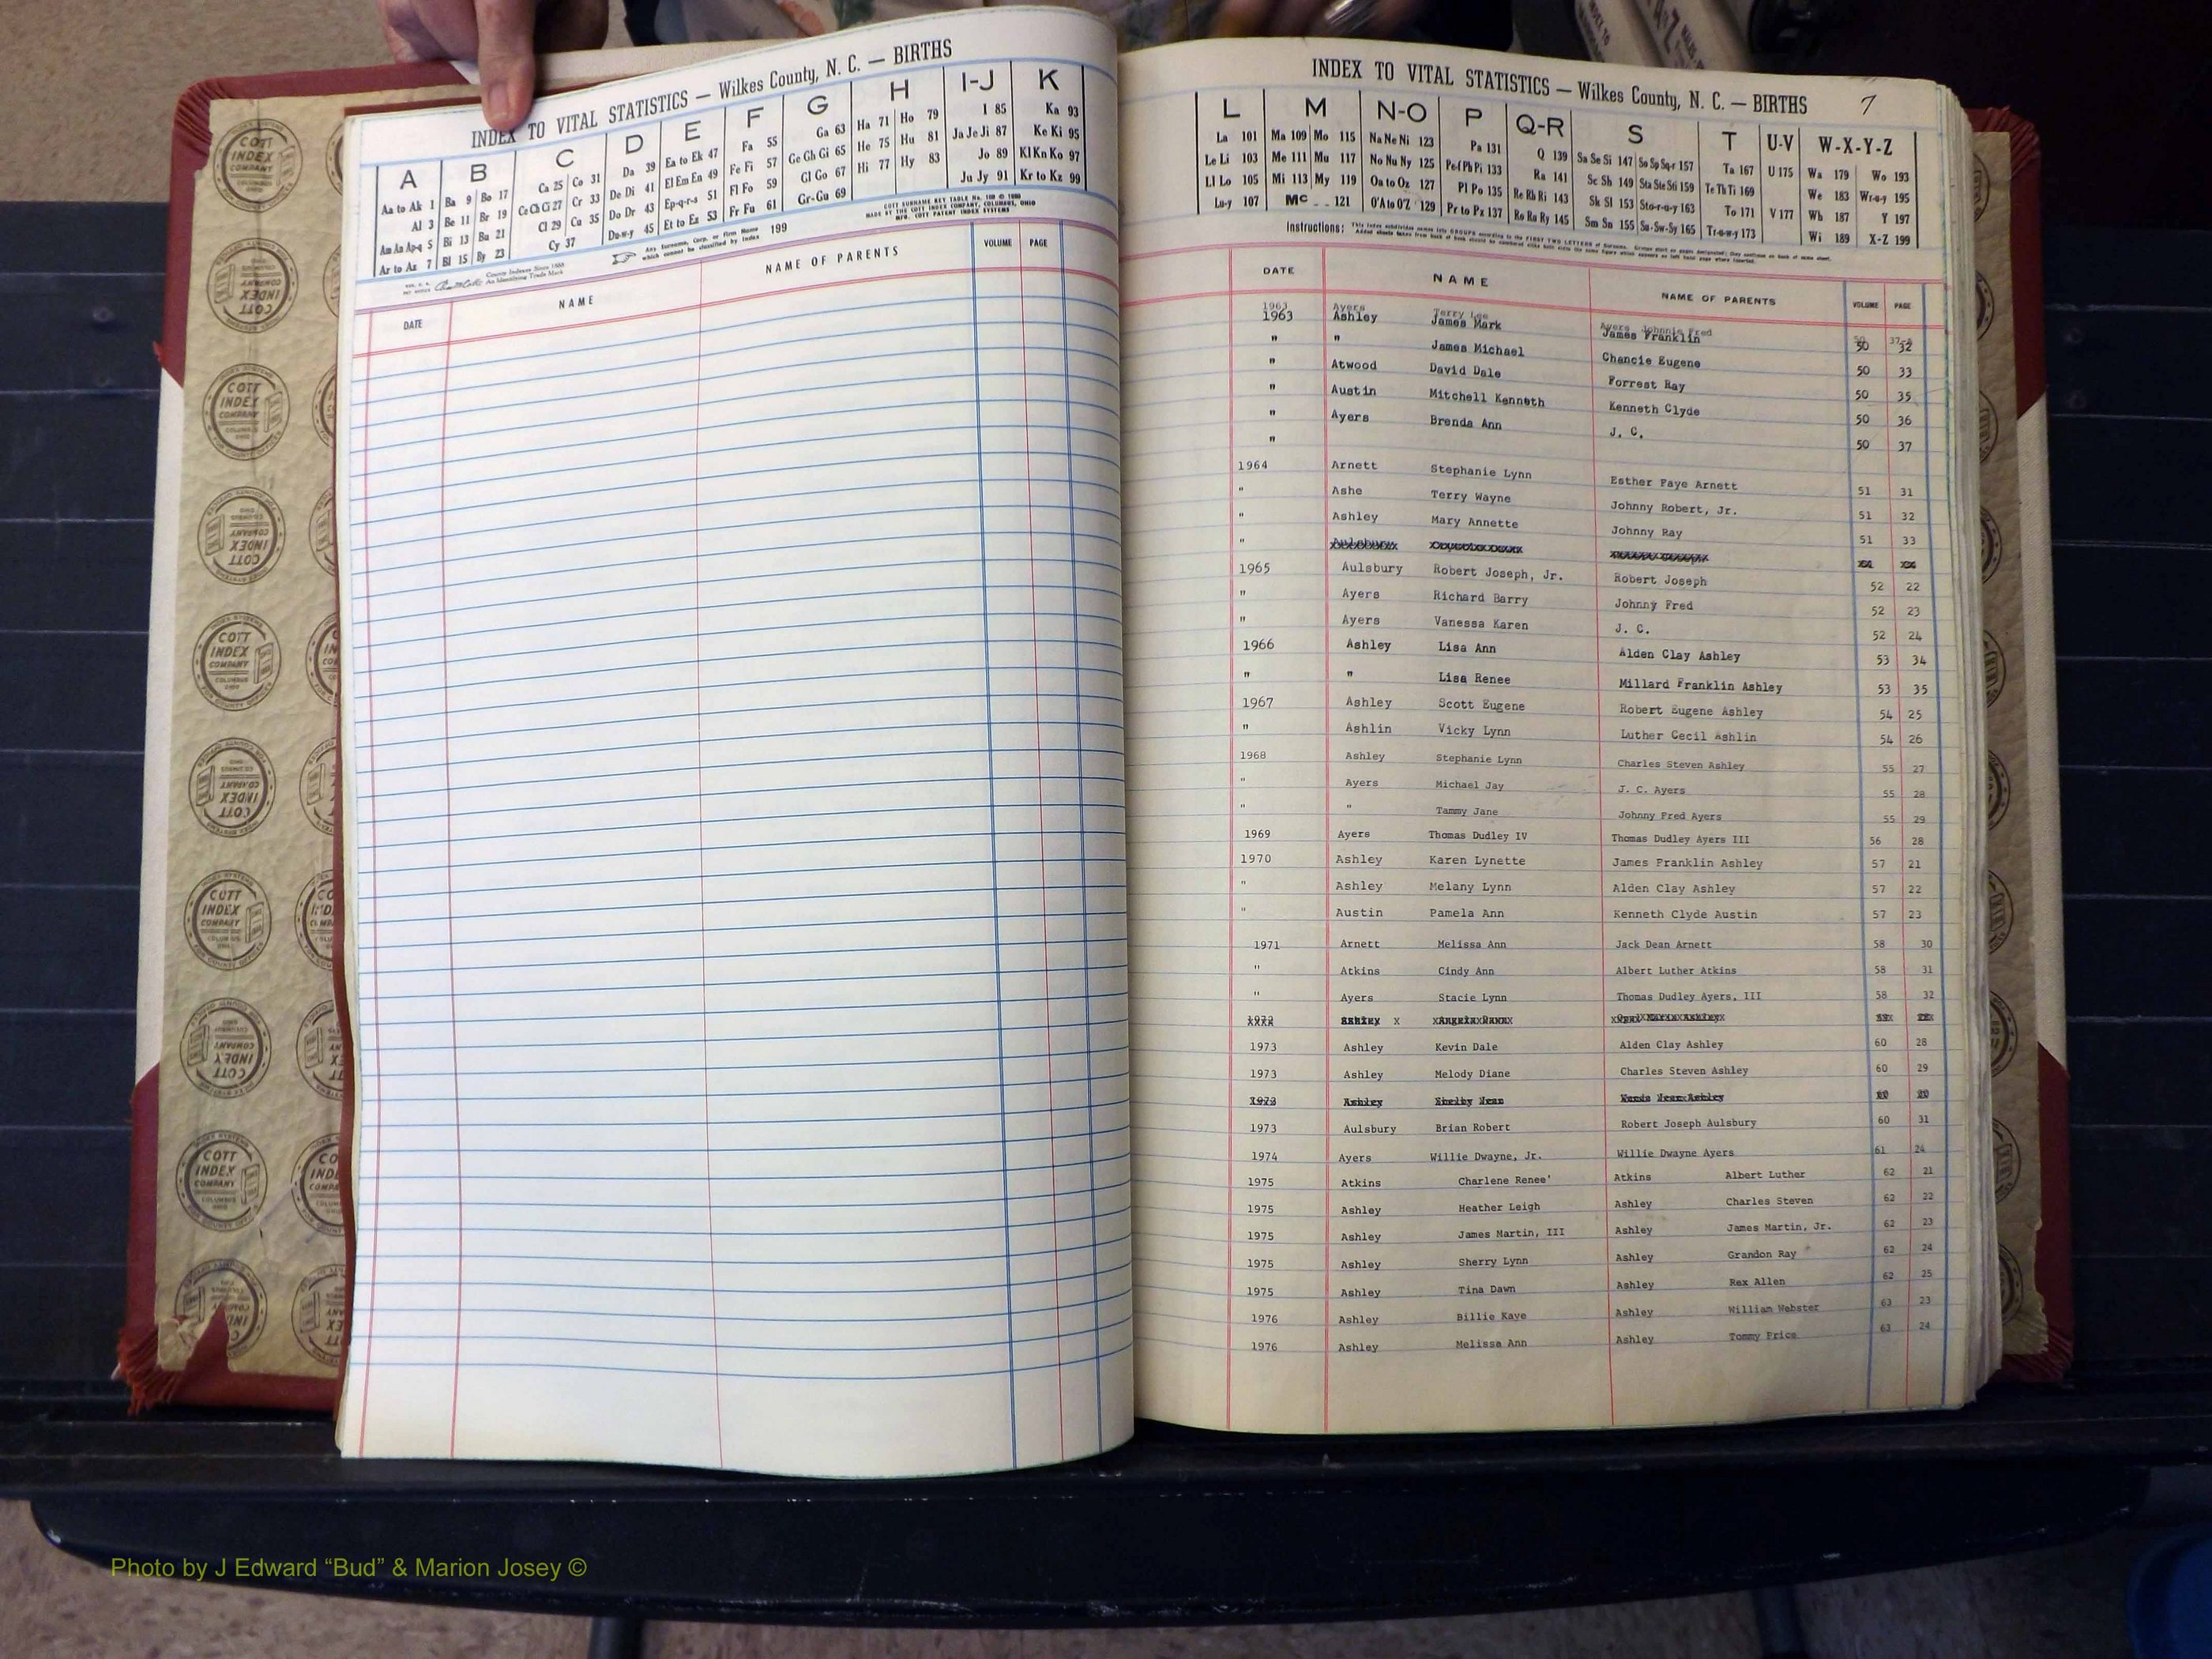 INDEX TO VITAL STATISTICS — Wilkes County, N. C. — BIRTHS
A B C D E F G H I-J K
Aa to Ak 1 Ba 9 Bo 17 Ca 25 Co 31 Da 39 Ea to Ek 47 Fa 55 Ga 63 Ha 71 Ho 79 I 85 Ka 93
Al 3 Be 11 Br 19 Ce Ch Ci 27 Cr 33 De Di 41 El Em En 49 Fe Fi 57 Ge Gh Gi 65 He 75 Hu 81 Ja Je Ji 87 Ke Ki 95
Am An Ap-q 5 Bi 13 Bu 21 Cl 29 Cu 35 Do Dr 43 Ep-q-r-s 51 Fl Fo 59 Gl Go 67 Hi 77 Hy 83 Jo 89 Kl Kn Ko 97
Ar to Az 7 Bl 15 By 23 Cy 37 Du-w-y 45 Et to Ez 53 Fr Fu 61 Gr-Gu 69 Ju Jy 91 Kr to Kz 99
Any Surname, Corp. or Firm Name which cannot be classified by Index 199
County Indexes Since 1888
An Identifying Trade Mark
MADE BY THE COTT INDEX COMPANY, COLUMBUS, OHIO
DATE NAME NAME OF PARENTS VOLUME PAGE
INDEX TO VITAL STATISTICS — Wilkes County, N. C. — BIRTHS 7
L M N-O P Q-R S T U-V W-X-Y-Z
La 101 Ma 109 Mo 115 Na Ne Ni 123 Pa 131 Q 139 Sa Se Si 147 So Sp Sq-r 157 Ta 167 U 175 Wa 179 Wo 193
Le Li 103 Me 111 Mu 117 No Nu Ny 125 Pe-f Ph Pi 133 Ra 141 Sc Sh 149 Sta Ste Sti 159 Te Th Ti 169 V 177 We 183 Wr-u-y 195
Ll Lo 105 Mi 113 My 119 Oa to Oz 127 Pl Po 135 Re Rh Ri 143 Sk Sl 153 Sto-r-u-y 163 To 171 Wh 187 Y 197
Lu-y 107 Mc 121 O'A to O'Z 129 Pr to Pz 137 Ro Ru Ry 145 Sm Sn 155 Su-Sw-Sy 165 Tr-u-w-y 173 Wi 189 X-Z 199
Instructions:
DATE NAME NAME OF PARENTS VOLUME PAGE
1963 Ayers Terry Lee Ayers Johnnie Fred 50
1963 Ashley James Mark James Franklin 50 32
" " James Michael Chancie Eugene 50 33
" Atwood David Dale Forrest Ray 50 35
" Austin Mitchell Kenneth Kenneth Clyde 50 36
" Ayers Brenda Ann J. C. 50 37
"
1964 Arnett Stephanie Lynn Esther Faye Arnett 51 31
" Ashe Terry Wayne Johnny Robert, Jr. 51 32
" Ashley Mary Annette Johnny Ray 51 33
" Aulsbury
1965 Aulsbury Robert Joseph, Jr. Robert Joseph 52 22
" Ayers Richard Barry Johnny Fred 52 23
" Ayers Vanessa Karen J. C. 52 24
1966 Ashley Lisa Ann Alden Clay Ashley 53 34
" " Lisa Renee Millard Franklin Ashley 53 35
1967 Ashley Scott Eugene Robert Eugene Ashley 54 25
" Ashlin Vicky Lynn Luther Cecil Ashlin 54 26
1968 Ashley Stephanie Lynn Charles Steven Ashley 55 27
" Ayers Michael Jay J. C. Ayers 55 28
" " Tammy Jane Johnny Fred Ayers 55 29
1969 Ayers Thomas Dudley IV Thomas Dudley Ayers III 56 28
1970 Ashley Karen Lynette James Franklin Ashley 57 21
" Ashley Melany Lynn Alden Clay Ashley 57 22
" Austin Pamela Ann Kenneth Clyde Austin 57 23
1971 Arnett Melissa Ann Jack Dean Arnett 58 30
" Atkins Cindy Ann Albert Luther Atkins 58 31
" Ayers Stacie Lynn Thomas Dudley Ayers, III 58 32
1972 Ashley
1973 Ashley Kevin Dale Alden Clay Ashley 60 28
1973 Ashley Melody Diane Charles Steven Ashley 60 29
1973 Ashley Shelby Jean
1973 Aulsbury Brian Robert Robert Joseph Aulsbury 60 31
1974 Ayers Willie Dwayne, Jr. Willie Dwayne Ayers 61 24
1975 Atkins Charlene Renee' Atkins Albert Luther 62 21
1975 Ashley Heather Leigh Ashley Charles Steven 62 22
1975 Ashley James Martin, III Ashley James Martin, Jr. 62 23
1975 Ashley Sherry Lynn Ashley Grandon Ray 62 24
1975 Ashley Tina Dawn Ashley Rex Allen 62 25
1976 Ashley Billie Kaye Ashley William Webster 63 23
1976 Ashley Melissa Ann Ashley Tommy Price 63 24
COTT INDEX COMPANY COLUMBUS OHIO
Photo by J Edward “Bud” & Marion Josey ©